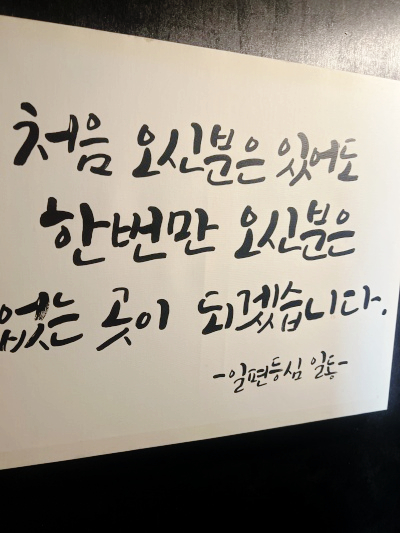 처음 오신분은 있어도
한번만 오신분은
없는 곳이 되겠습니다.
-일편등심 일동-